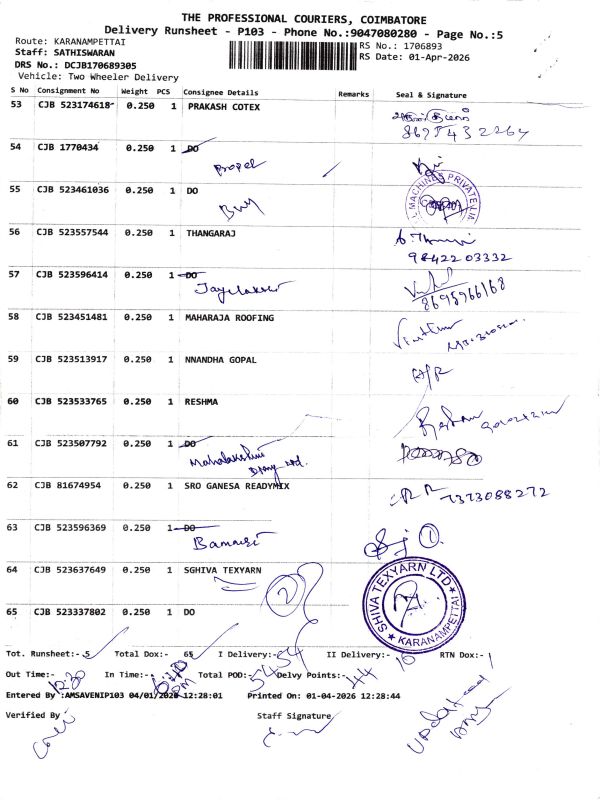 THE PROFESSIONAL COURIERS, COIMBATORE
Delivery Runsheet - P103 - Phone No.:9047080280 - Page No.:5
Route: KARANAMPETTAI
Staff: SATHISWARAN
DRS No.: DCJB170689305
Vehicle: Two Wheeler Delivery
RS No.: 1706893
RS Date: 01-Apr-2026
S No Consignment No Weight PCS Consignee Details Remarks Seal & Signature
53 CJB 523174618 0.250 1 PRAKASH COTEX
54 CJB 1770434 0.250 1 DO
Propel
55 CJB 523461036 0.250 1 DO
MACHINES PRIVATE LIM
56 CJB 523557544 0.250 1 THANGARAJ
98422 03332
57 CJB 523596414 0.250 1 DO
8695966168
58 CJB 523451481 0.250 1 MAHARAJA ROOFING
59 CJB 523513917 0.250 1 NNANDHA GOPAL
60 CJB 523533765 0.250 1 RESHMA
61 CJB 523507792 0.250 1 DO
Mahalakshmi
62 CJB 81674954 0.250 1 SRO GANESA READYMIX
7373088272
63 CJB 523596369 0.250 1 DO
Bannari
1
64 CJB 523637649 0.250 1 SGHIVA TEXYARN
2
SHIVA TEXYARN LTD
KARANAMPETTAI
65 CJB 523337802 0.250 1 DO
Tot. Runsheet:- 5 Total Dox:- 65 I Delivery:- 54 II Delivery:- 10 RTN Dox:- 1
Out Time:- 12:30 In Time:- Total POD:- 54 Delvy Points:- 44
Entered By :AMSAVENIP103 04/01/2026 12:28:01 Printed On: 01-04-2026 12:28:44
Verified By Staff Signature